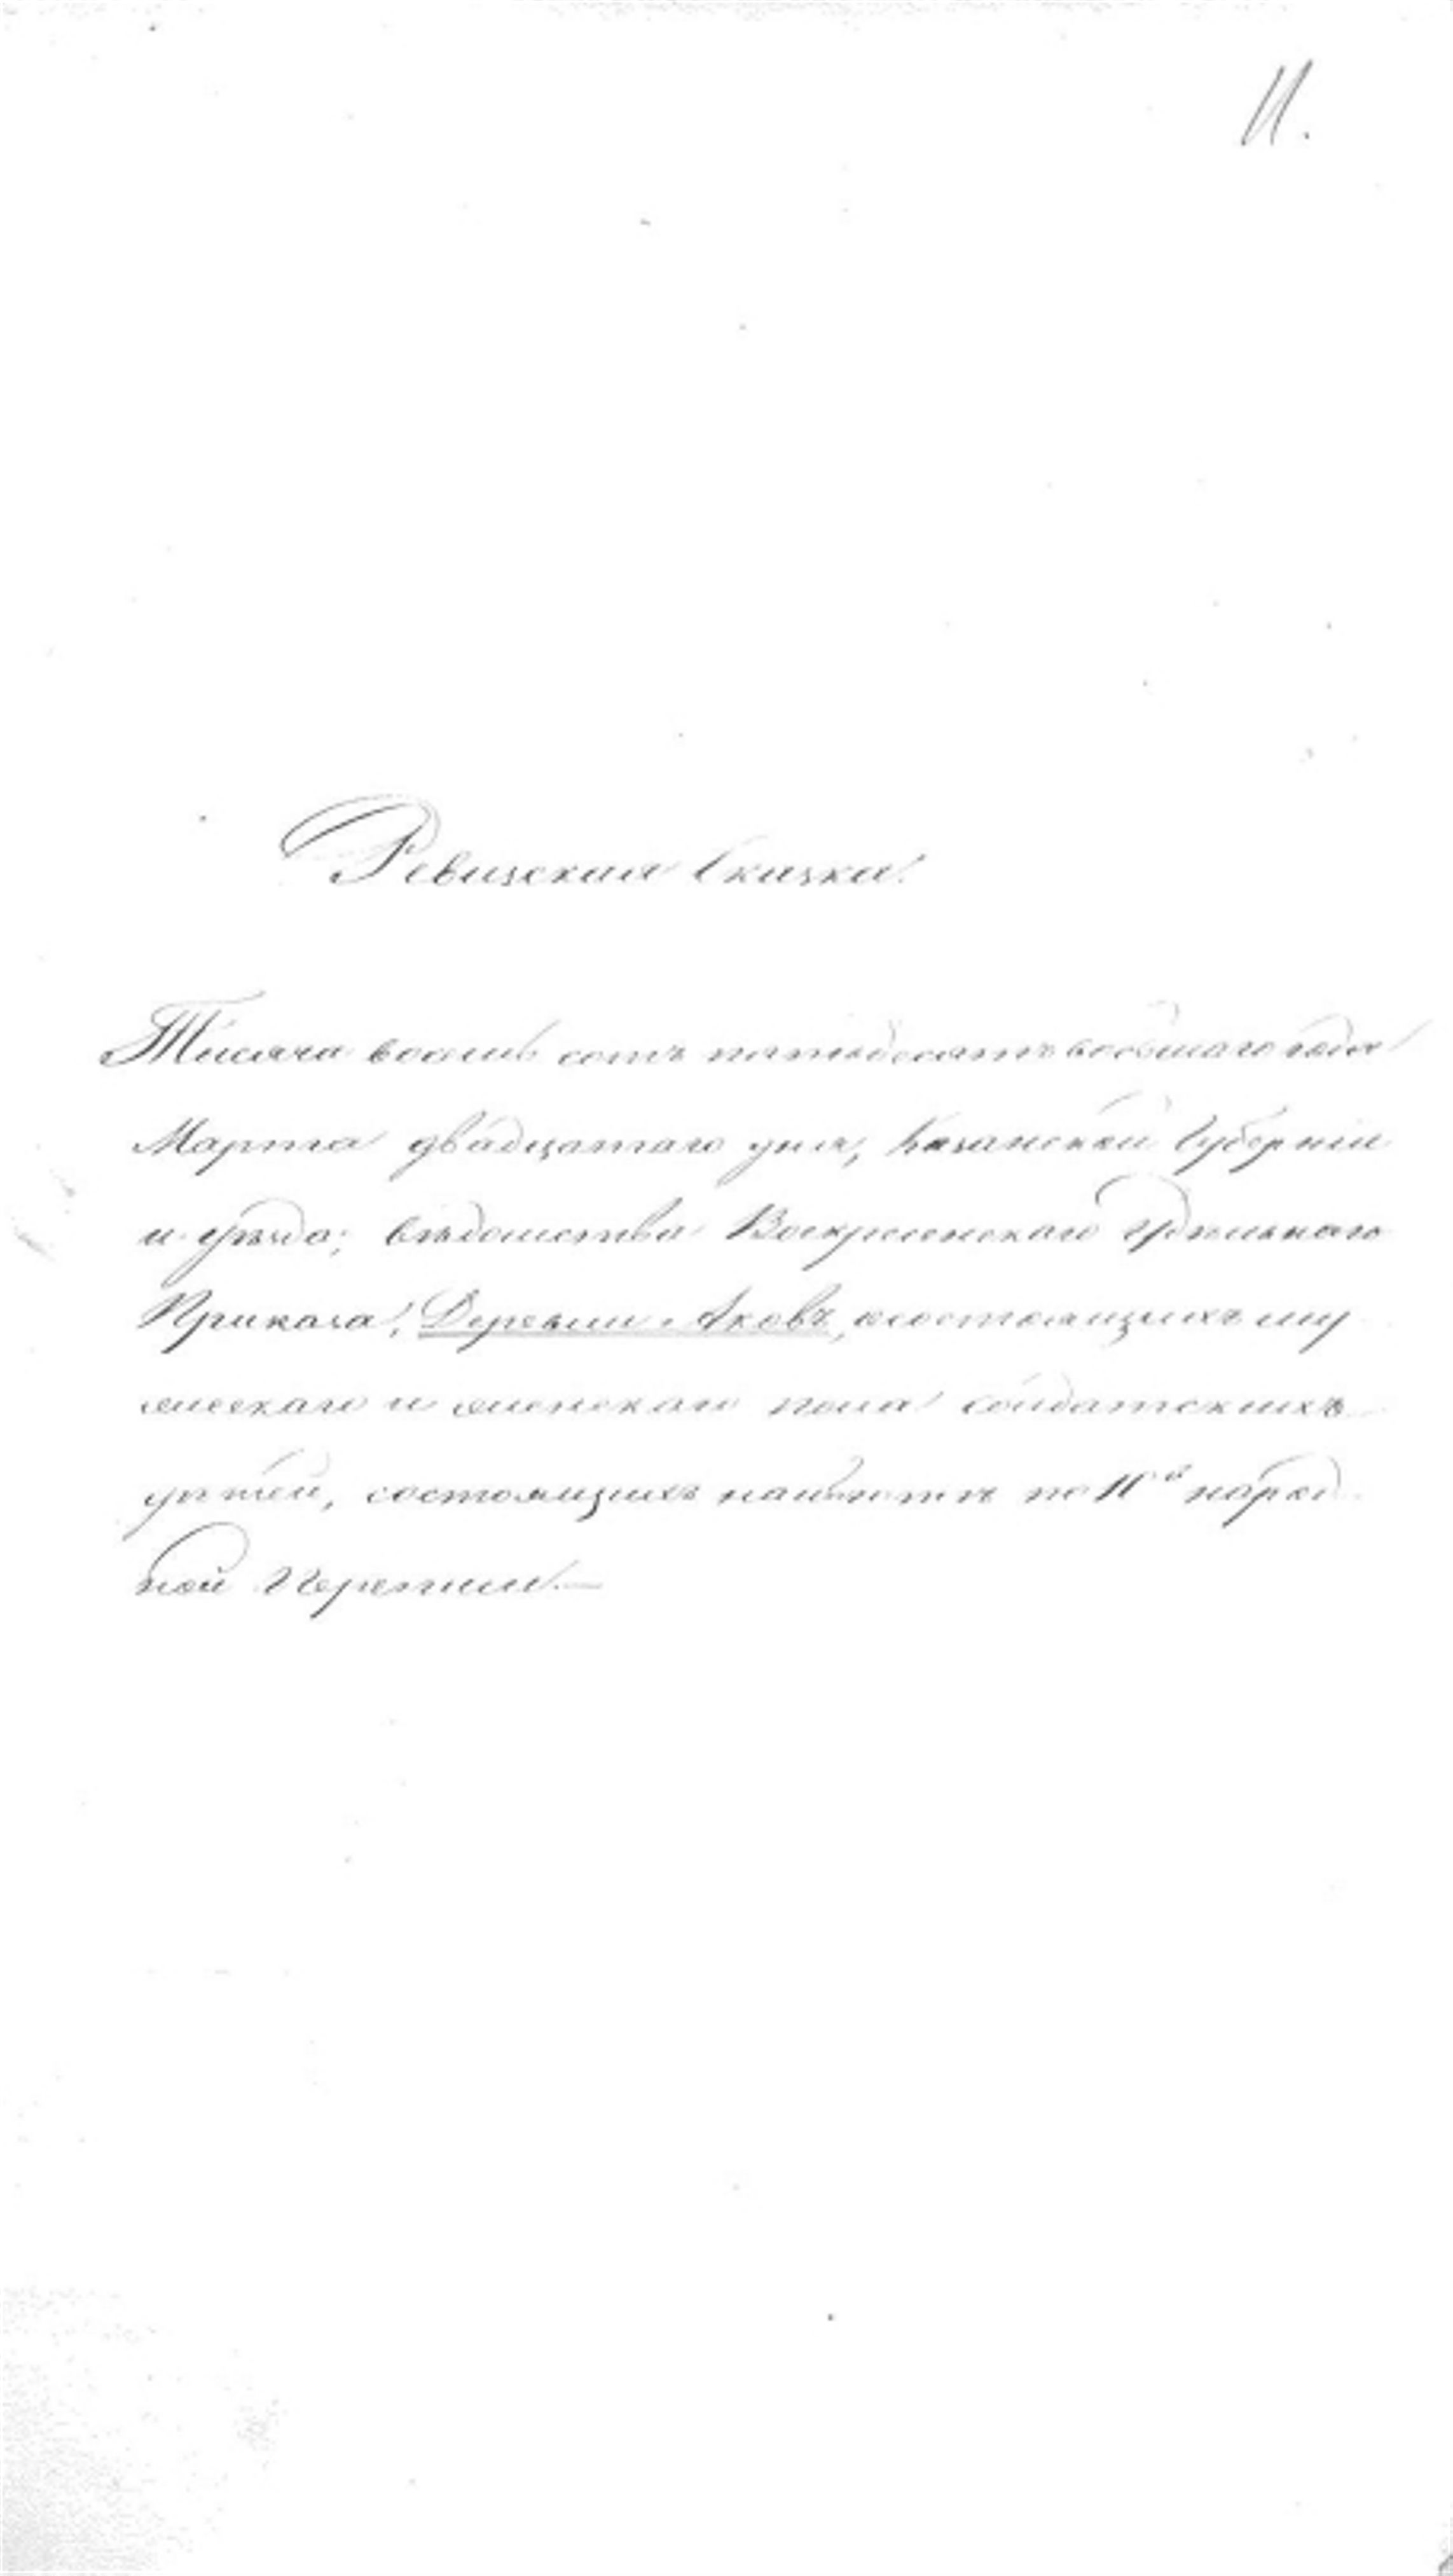 11.
Ревизская Сказка.
Тысяча восемь сотъ пятьдесятъ восьмаго года
Марта двадцатаго дня, Казанской Губерніи
и уѣзда, вѣдомства Воскресенскаго Удѣльнаго
Приказа, Деревни Аковъ, о состоящихъ му
жескаго и женскаго пола солдатскихъ
дѣтей, состоящихъ на по 10й народ
ной Переписи.—